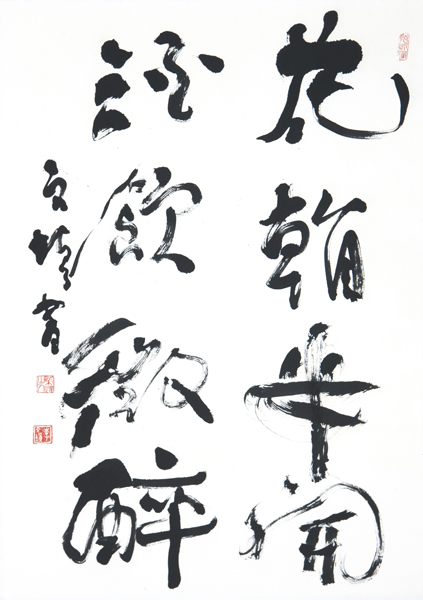 花看半開
酒飲微醉
書